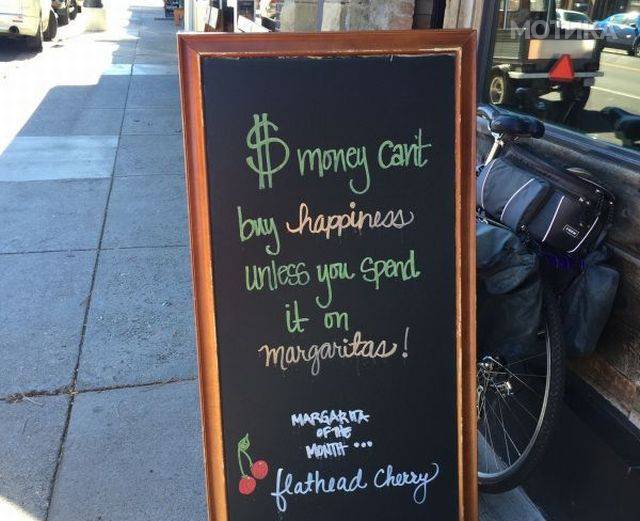 МОТИКА
$ money can't
buy happiness
unless you spend
it on
margaritas!
MARGARITA
OF THE
MONTH ...
flathead Cherry